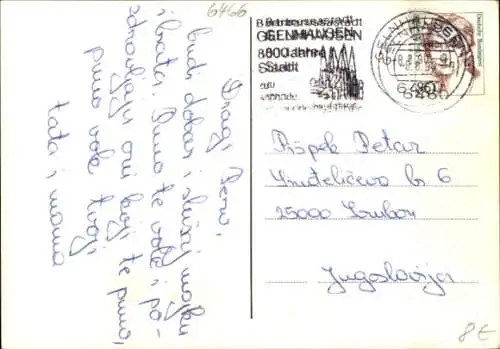 6466
Dragi Pero,
budi dobar i slušaj majku
i brata. Puno te vole i po-
zdravljaju oni koji te puno,
puno vole tvoji
tata i mama
Barbarossastadt
GELNHAUSEN
800 Jahre
Stadt
GELNHAUSEN
6460
Deutsche Bundespost
Pišpek Petar
br 6
25000 Sombor
Jugoslavija
8€